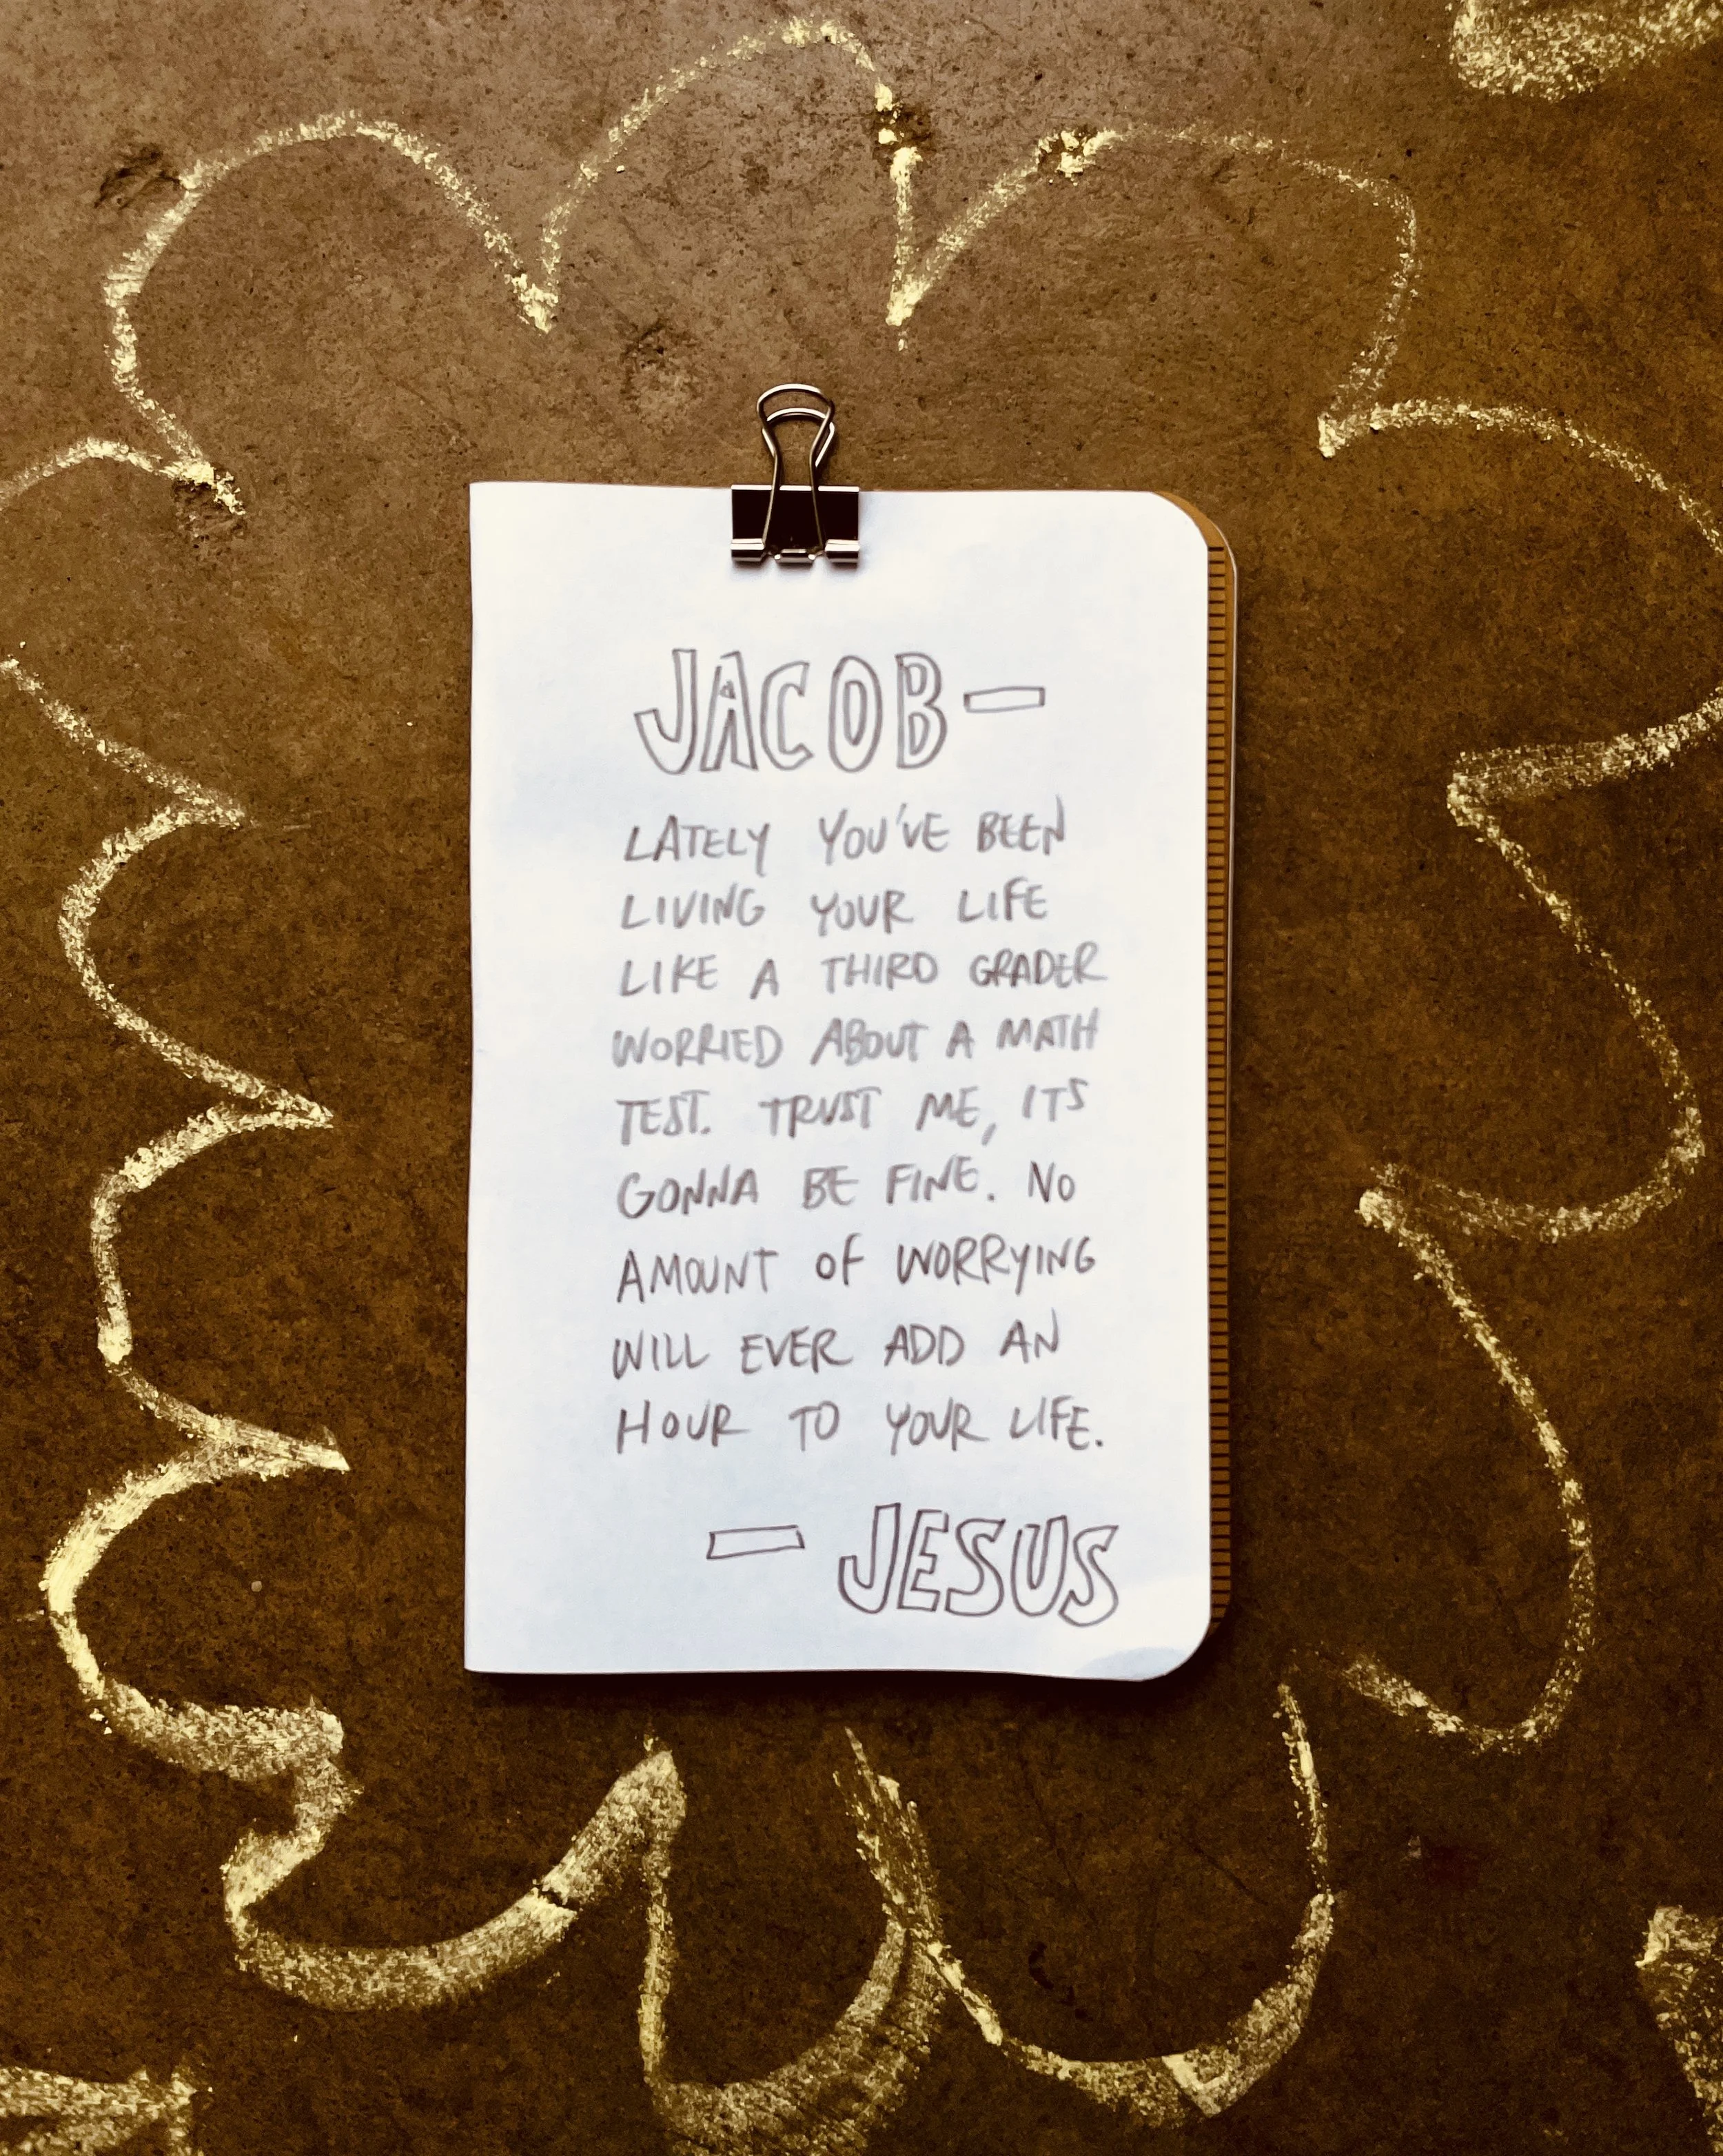 JACOB—
LATELY YOU'VE BEEN
LIVING YOUR LIFE
LIKE A THIRD GRADER
WORRIED ABOUT A MATH
TEST. TRUST ME, ITS
GONNA BE FINE. NO
AMOUNT OF WORRYING
WILL EVER ADD AN
HOUR TO YOUR LIFE.
— JESUS